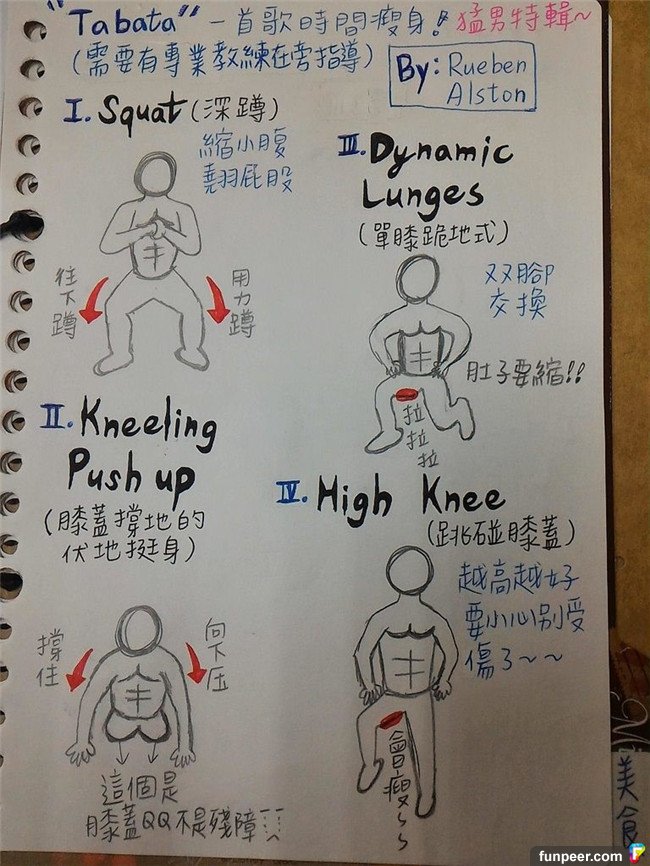 "Tabata" 一首歌時間瘦身! 猛男特輯~
(需要有專業教練在旁指導)
By: Rueben
Alston
I. Squat (深蹲)
縮小腹
翹屁股
往下蹲
用力蹲
II. Kneeling
Push up
(膝蓋撐地的
伏地挺身)
撐住
向下压
這個是
膝蓋QQ不是殘障!!
III. Dynamic
Lunges
(單膝跪地式)
双腳
交換
肚子要縮!!
拉
拉
拉
IV. High Knee
(跳碰膝蓋)
越高越好
要小心別受
傷了~~
會瘦~~
美食
funpeer.com